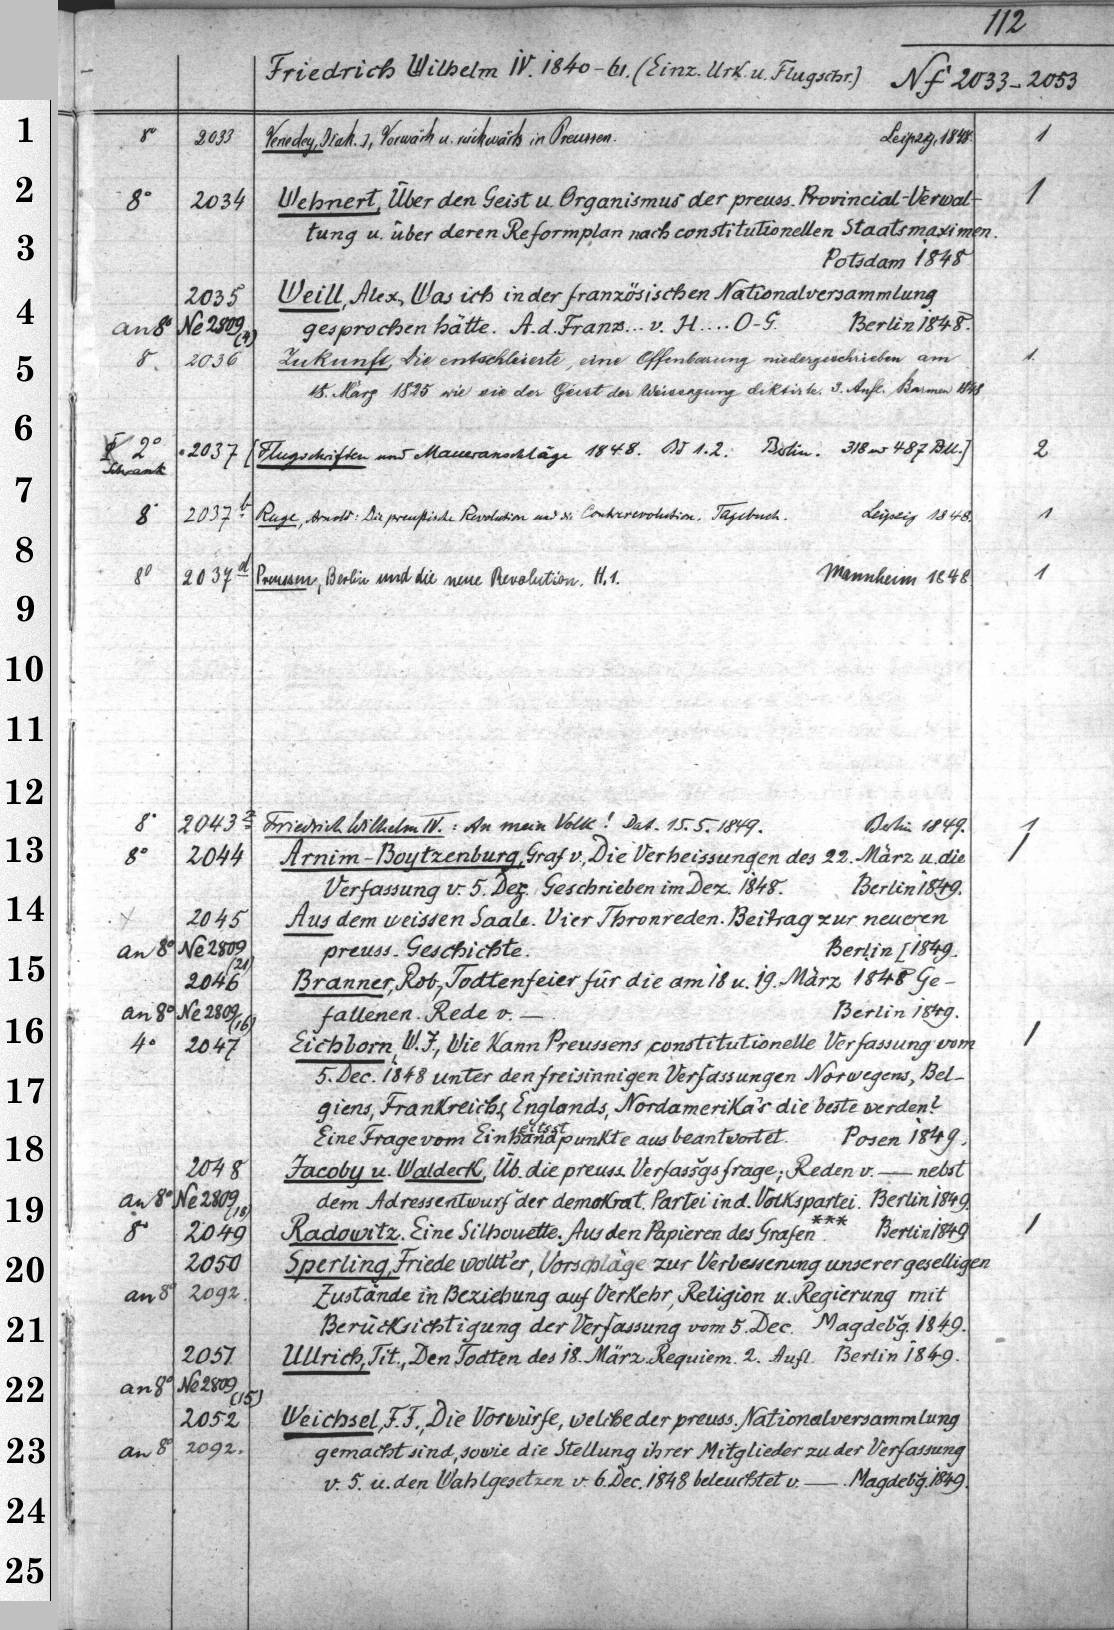 112
Friedrich Wilhelm IV. 1840-61. (Einz. Urk. u. Flugschr.) Nf 2033-2053
1
8° 2033 Venedey, [Jak.], Vorwärts u. rückwärts in Preussen. Leipzig, 1848. 1
2
8° 2034 Wehnert, Über den Geist u. Organismus der preuss. Provincial-Verwal- 1
tung u. über deren Reformplan nach constitutionellen Staatsmaximen.
3
Potsdam 1848
2035 Weill, Alex., Was ich in der französischen Nationalversammlung
4
an 8° Ne 2809 (4) gesprochen hätte. A. d. Franz... v. H .... O-G. Berlin 1848.
5
8°. 2036 Zukunft, Die entschleierte, eine Offenbarung niedergeschrieben am 1.
15. März 1825 wie sie der Geist der Weissagung diktirte. 3. Aufl. Barmen 1848
6
2° 2037 [Flugschriften und Maueranschläge 1848. Bd 1.2. Berlin. 318 u 487 Bll.] 2
Schrank
7
8° 2037 b Ruge, Arnold: Die preußische Revolution und die Contrerevolution. Tagebuch. Leipzig 1848. 1
8
8° 2037 d Preussen, Berlin und die neue Revolution. H. 1. Mannheim 1848 1
9
10
11
12
8° 2043 a Friedrich Wilhelm IV.: An mein Volk! Dat. 15.5.1849. Berlin 1849. 1
13
8° 2044 Arnim-Boytzenburg, Graf v., Die Verheissungen des 22. März u. die 1
Verfassung v. 5. Dez. Geschrieben im Dez. 1848. Berlin 1849.
14
2045 Aus dem weissen Saale. Vier Thronreden. Beitrag zur neueren
an 8° Ne 2809 (21) preuss. Geschichte. Berlin [1849.
15
2046 Branner, Rob., Todtenfeier für die am 18 u. 19. März 1848 Ge-
an 8° Ne 2809 (16) fallenen. Rede v. — Berlin 1849.
16
4° 2047 Eichborn, W. F., Wie kann Preussens constitutionelle Verfassung vom 1
5. Dec. 1848 unter den freisinnigen Verfassungen Norwegens, Bel-
17
giens, Frankreichs, Englands, Nordamerika's die beste werden?
Eine Frage vom Einhandpunkte aus beantwortet. Posen 1849.
18
2048 Jacoby u. Waldeck, Üb. die preuss. Verfassgsfrage; Reden v. — nebst
an 8° Ne 2809 (18) dem Adressentwurf der demokrat. Partei in d. Volkspartei. Berlin 1849.
19
8° 2049 Radowitz. Eine Silhouette. Aus den Papieren des Grafen ***. Berlin 1849 1
20
2050 Sperling, Friede wollt'er, Vorschläge zur Verbesserung unserer geselligen
an 8° 2092. Zustände in Beziehung auf Verkehr, Religion u. Regierung mit
21
Berücksichtigung der Verfassung vom 5. Dec. Magdebg. 1849.
2051 Ullrich, Tit., Den Todten des 18. März. Requiem. 2. Aufl. Berlin 1849.
22
an 8° Ne 2809 (15)
2052 Weichsel, F. F., Die Vorwürfe, welche der preuss. Nationalversammlung
23
an 8° 2092. gemacht sind, sowie die Stellung ihrer Mitglieder zu der Verfassung
v. 5. u. den Wahlgesetzen v. 6. Dec. 1848 beleuchtet v. —. Magdebg. 1849.
24
25